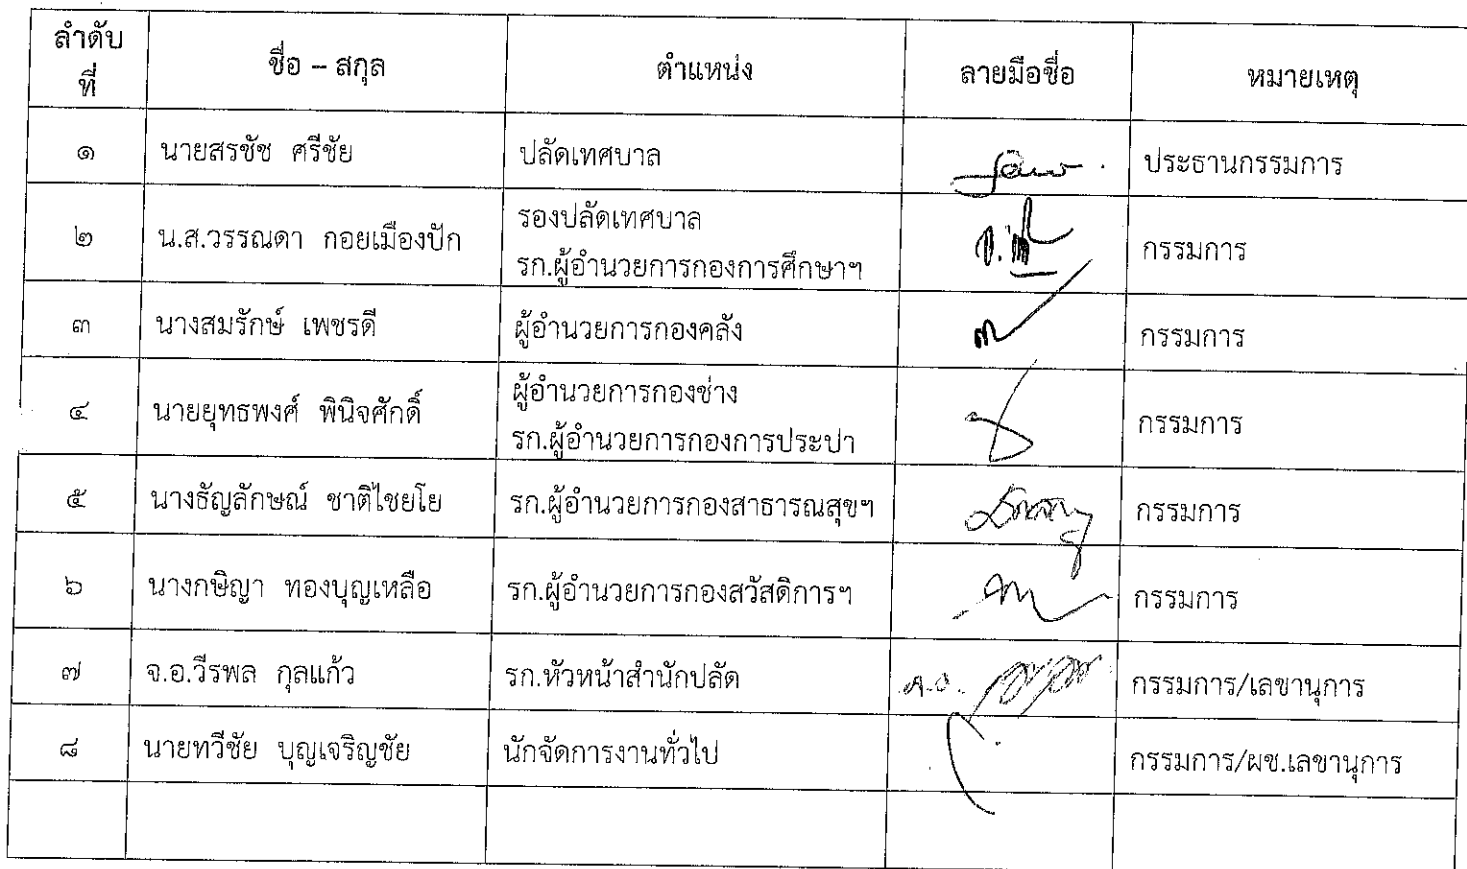 ลำดับ
ที่
ชื่อ – สกุล
ตำแหน่ง
ลายมือชื่อ
หมายเหตุ
๑
นายสรชัช ศรีชัย
ปลัดเทศบาล
ประธานกรรมการ
๒
น.ส.วรรณดา กอยเมืองปัก
รองปลัดเทศบาล
รก.ผู้อำนวยการกองการศึกษาฯ
กรรมการ
๓
นางสมรักษ์ เพชรดี
ผู้อำนวยการกองคลัง
กรรมการ
๔
นายยุทธพงศ์ พินิจศักดิ์
ผู้อำนวยการกองช่าง
รก.ผู้อำนวยการกองการประปา
กรรมการ
๕
นางธัญลักษณ์ ชาติไชยโย
รก.ผู้อำนวยการกองสาธารณสุขฯ
กรรมการ
๖
นางกษิญา ทองบุญเหลือ
รก.ผู้อำนวยการกองสวัสดิการฯ
กรรมการ
๗
จ.อ.วีรพล กุลแก้ว
รก.หัวหน้าสำนักปลัด
กรรมการ/เลขานุการ
๘
นายทวีชัย บุญเจริญชัย
นักจัดการงานทั่วไป
กรรมการ/ผช.เลขานุการ